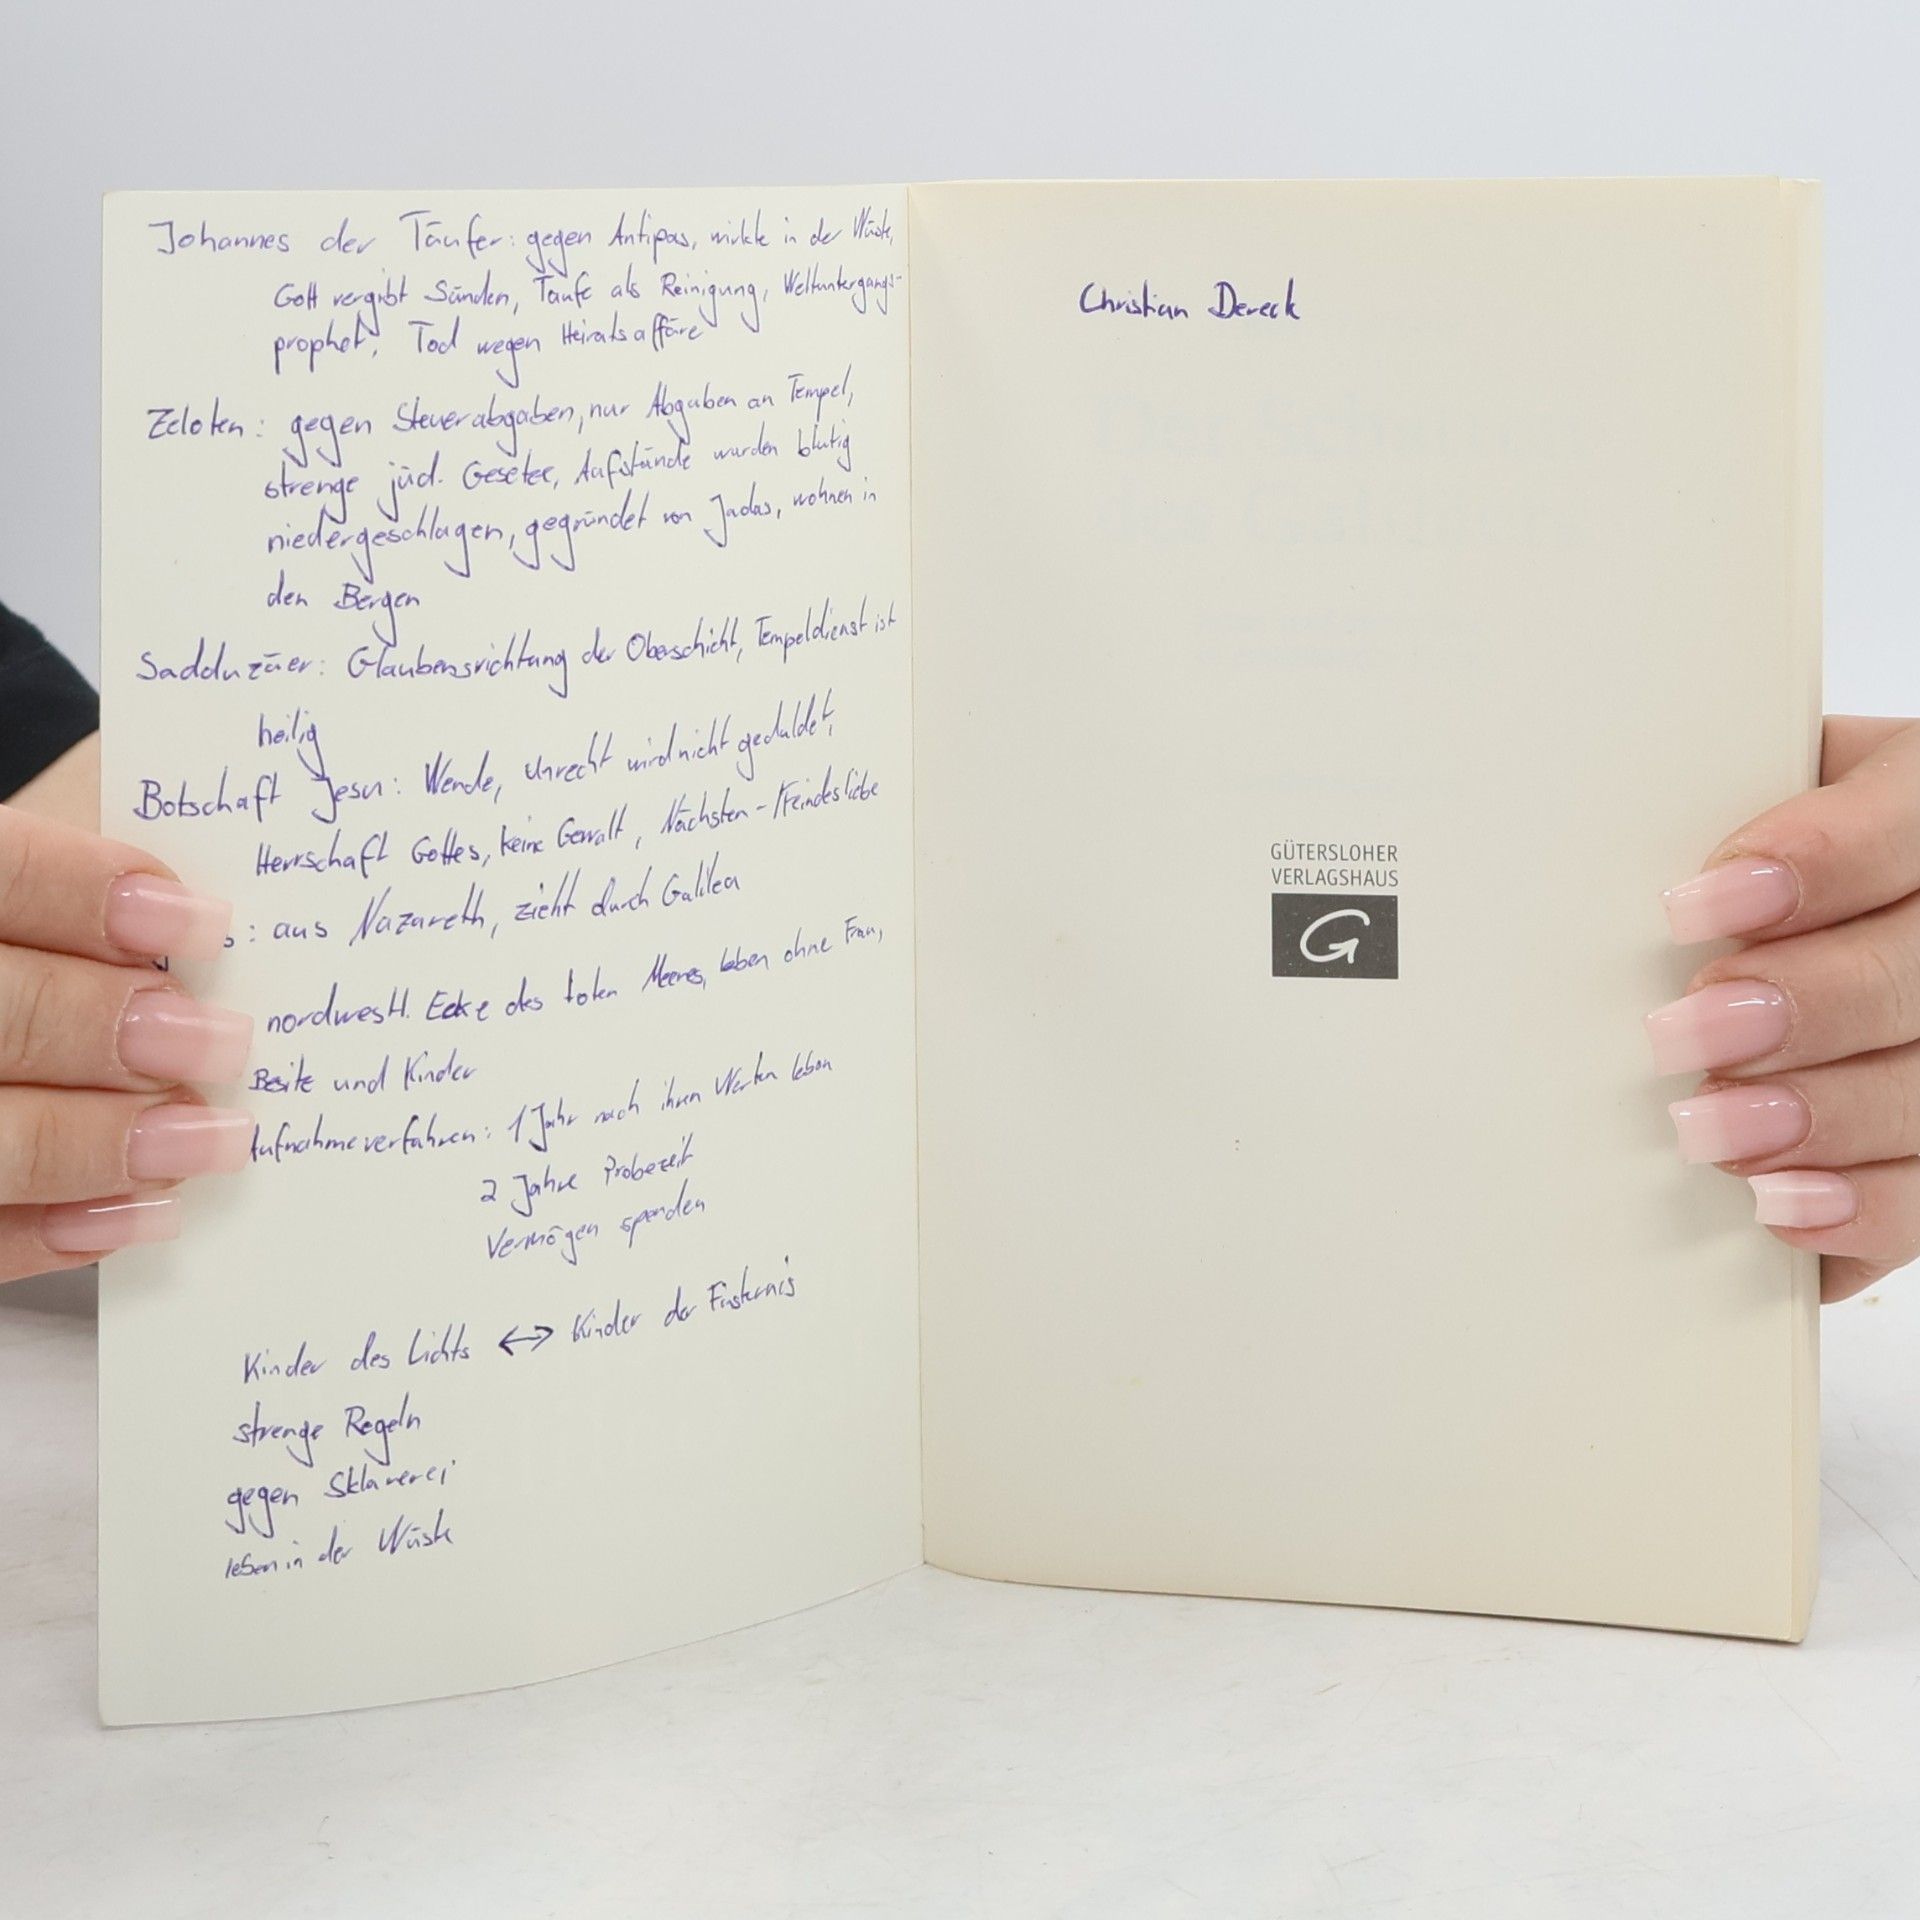 Johannes der Täufer: gegen Antipas, wirkte in der Wüste,
Gott vergibt Sünden, Taufe als Reinigung, Weltuntergangs-
prophet, Tod wegen Heiratsaffäre
Zeloten: gegen Steuerabgaben, nur Abgaben an Tempel,
strenge jüd. Gesetze, Aufstände wurden blutig
niedergeschlagen, gegründet von Judas, wohnen in
den Bergen
Sadduzäer: Glaubensrichtung der Oberschicht, Tempeldienst ist
heilig
Botschaft Jesu: Wende, Unrecht wird nicht geduldet,
Herrschaft Gottes, keine Gewalt, Nächsten-/Feindesliebe
s: aus Nazareth, zieht durch Galilea
nordwestl. Ecke des toten Meeres, leben ohne Frau,
Besitz und Kinder
Aufnahmeverfahren: 1 Jahr nach ihren Werten leben
2 Jahre Probezeit
Vermögen spenden
Kinder des Lichts <-> Kinder der Finsternis
strenge Regeln
gegen Sklaverei
leben in der Wüste
Christian Dereck
GÜTERSLOHER
VERLAGSHAUS
G